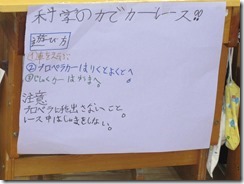 科学のカでカーレース!!
遊び方
②プロペラカーはりくとよくとへ
③じしゃくカーはりまへ。
注意
プロペラに指出さないこと。
レース中はじゃまをしない。